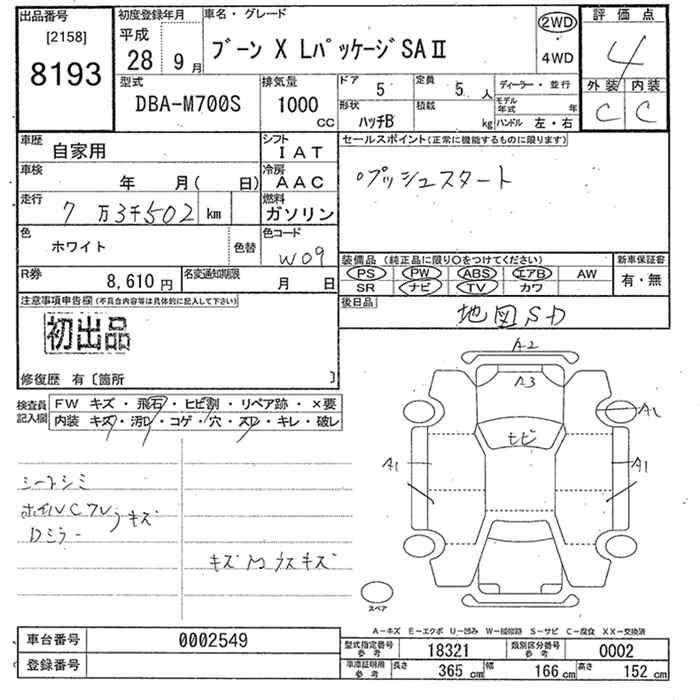 出品番号
[2158]
8193
初度登録年月
平成
28年 9月
車名・グレード
ブーン X LパッケージSAⅡ
2WD
4WD
評価点
4
外装 内装
C C
型式
DBA-M700S
排気量
1000
CC
ドア
5
定員
5 人
ディーラー・並行
形状
ハッチB
積載
kg
モデル年式 年
ハンドル 左・右
車歴
自家用
シフト
IAT
セールスポイント(正常に機能するものに限ります)
プッシュスタート
車検
年 月( 日)
冷房
AAC
走行
7万3千502 km
燃料
ガソリン
色
ホワイト
色替
色コード
W09
R券
8,610円
名変通知期限
月 日
装備品(純正品に限り○をつけてください)
PS PW ABS エアB AW
SR ナビ TV カワ
新車保証書
有・無
後日品
地図SD
注意事項申告欄(不具合内容等は具体的に記入して下さい)
初出品
修復歴 有〔箇所 〕
検査員記入欄
FW キズ・飛石・ヒビ割・リペア跡・×要
内装 キズ・汚レ・コゲ・穴・スレ・キレ・破レ
シートシミ
ホイルCワレ
Dミラー
キズ
キズ
ウスキズ
A2
A3
A1
ヒビ
A1
A1
スペア
A-キズ E-エクボ U-凹み W-補修跡 S-サビ C-腐食 XX-交換済
車台番号
0002549
登録番号
型式指定番号参考
18321
類別区分番号参考
0002
車庫証明用参考
長さ 365 cm
幅 166 cm
高さ 152 cm